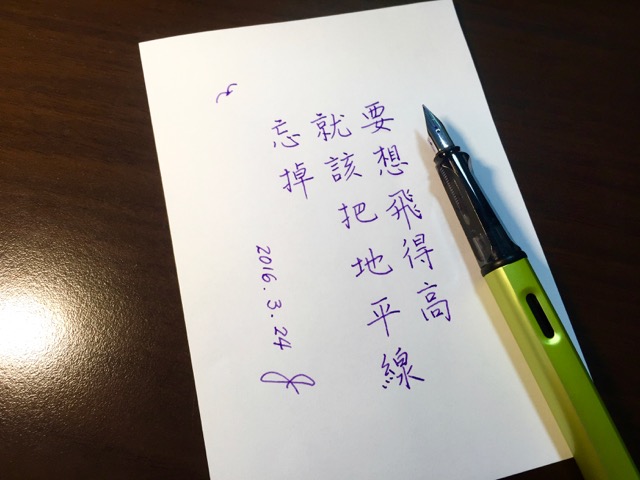 要想飛得高
就該把地平線
忘掉
2016.3.24